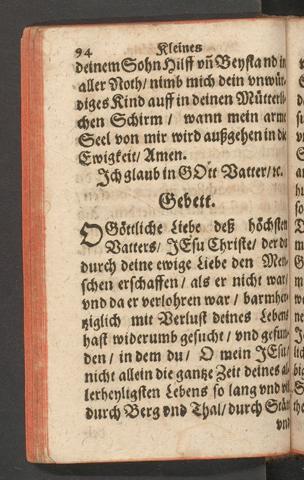 94 Kleines
deinem Sohn Hilff vñ Beystand in
aller Noth/ nimb mich dein vnwür-
diges Kind auff in deinen Mütterli-
chen Schirm/ wann mein arme
Seel von mir wird außgehen in die
Ewigkeit/ Amen.
Ich glaub in GOtt Vatter/ ꝛc.
Gebett.
O Göttliche Liebe deß höchsten
Vatters/ JEsu Christe/ der du
durch deine ewige Liebe den Men-
schen erschaffen/ als er nicht war/
vnd da er verlohren war/ barmher-
tziglich mit Verlust deines Lebens
hast widerumb gesucht/ vnd gefun-
den/ in dem du/ O mein JESu/
nicht allein die gantze Zeit deines al-
lerheyligsten Lebens so lang vnd vil
durch Berg vnd Thal/ durch Stätt
vnd